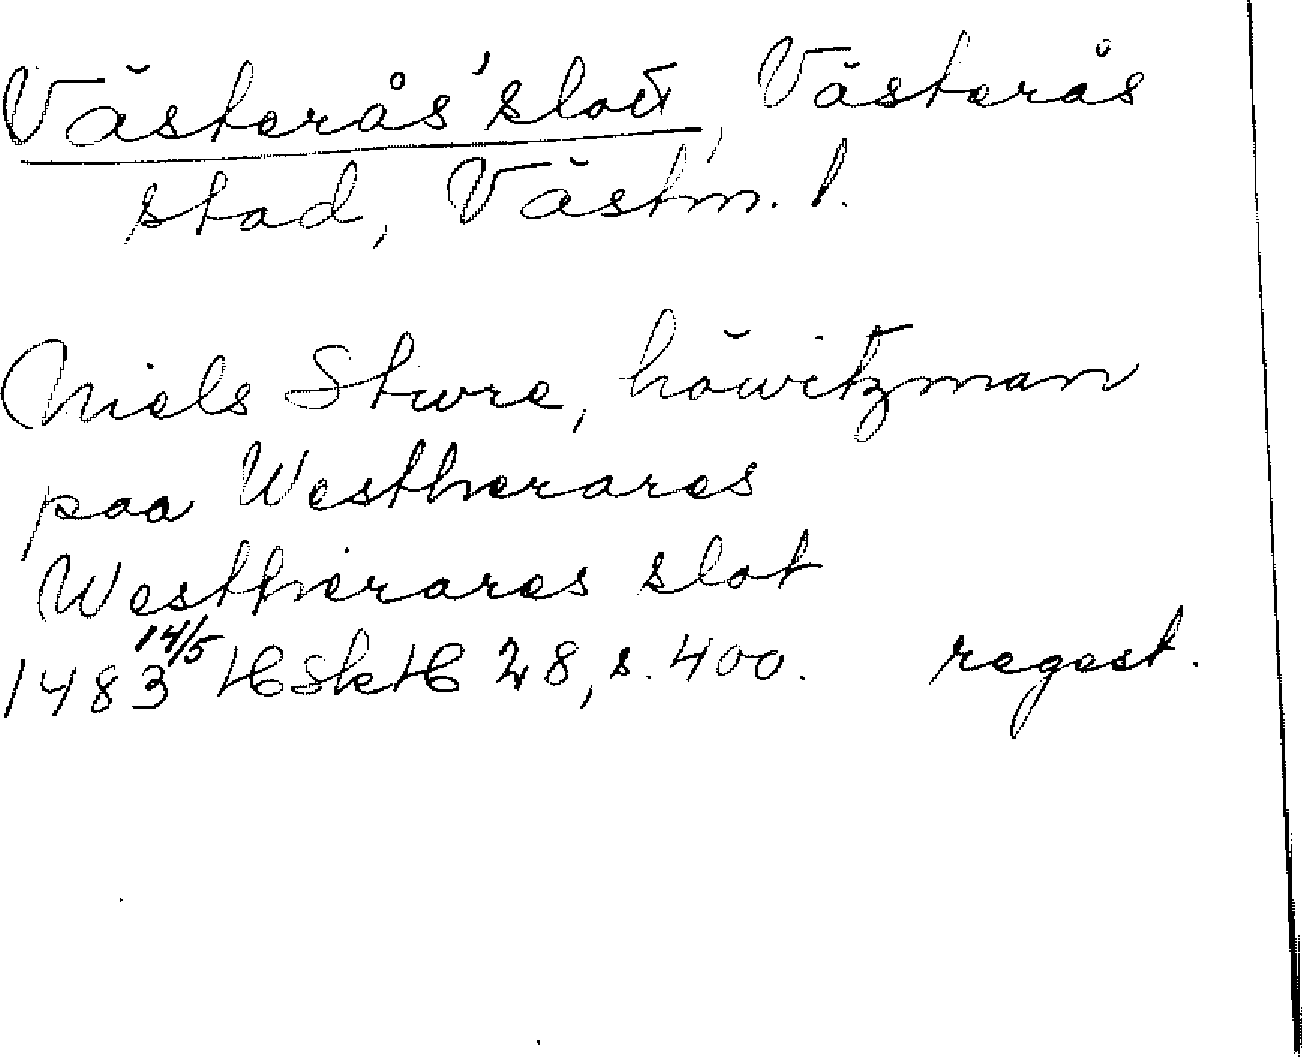 Västerås' slott, Västerås
stad, Västm. l.
Niels Stwre, höwitzman
paa Westherares
Westherares slot
1483 14/5 HSkH 28, s. 400. regest.